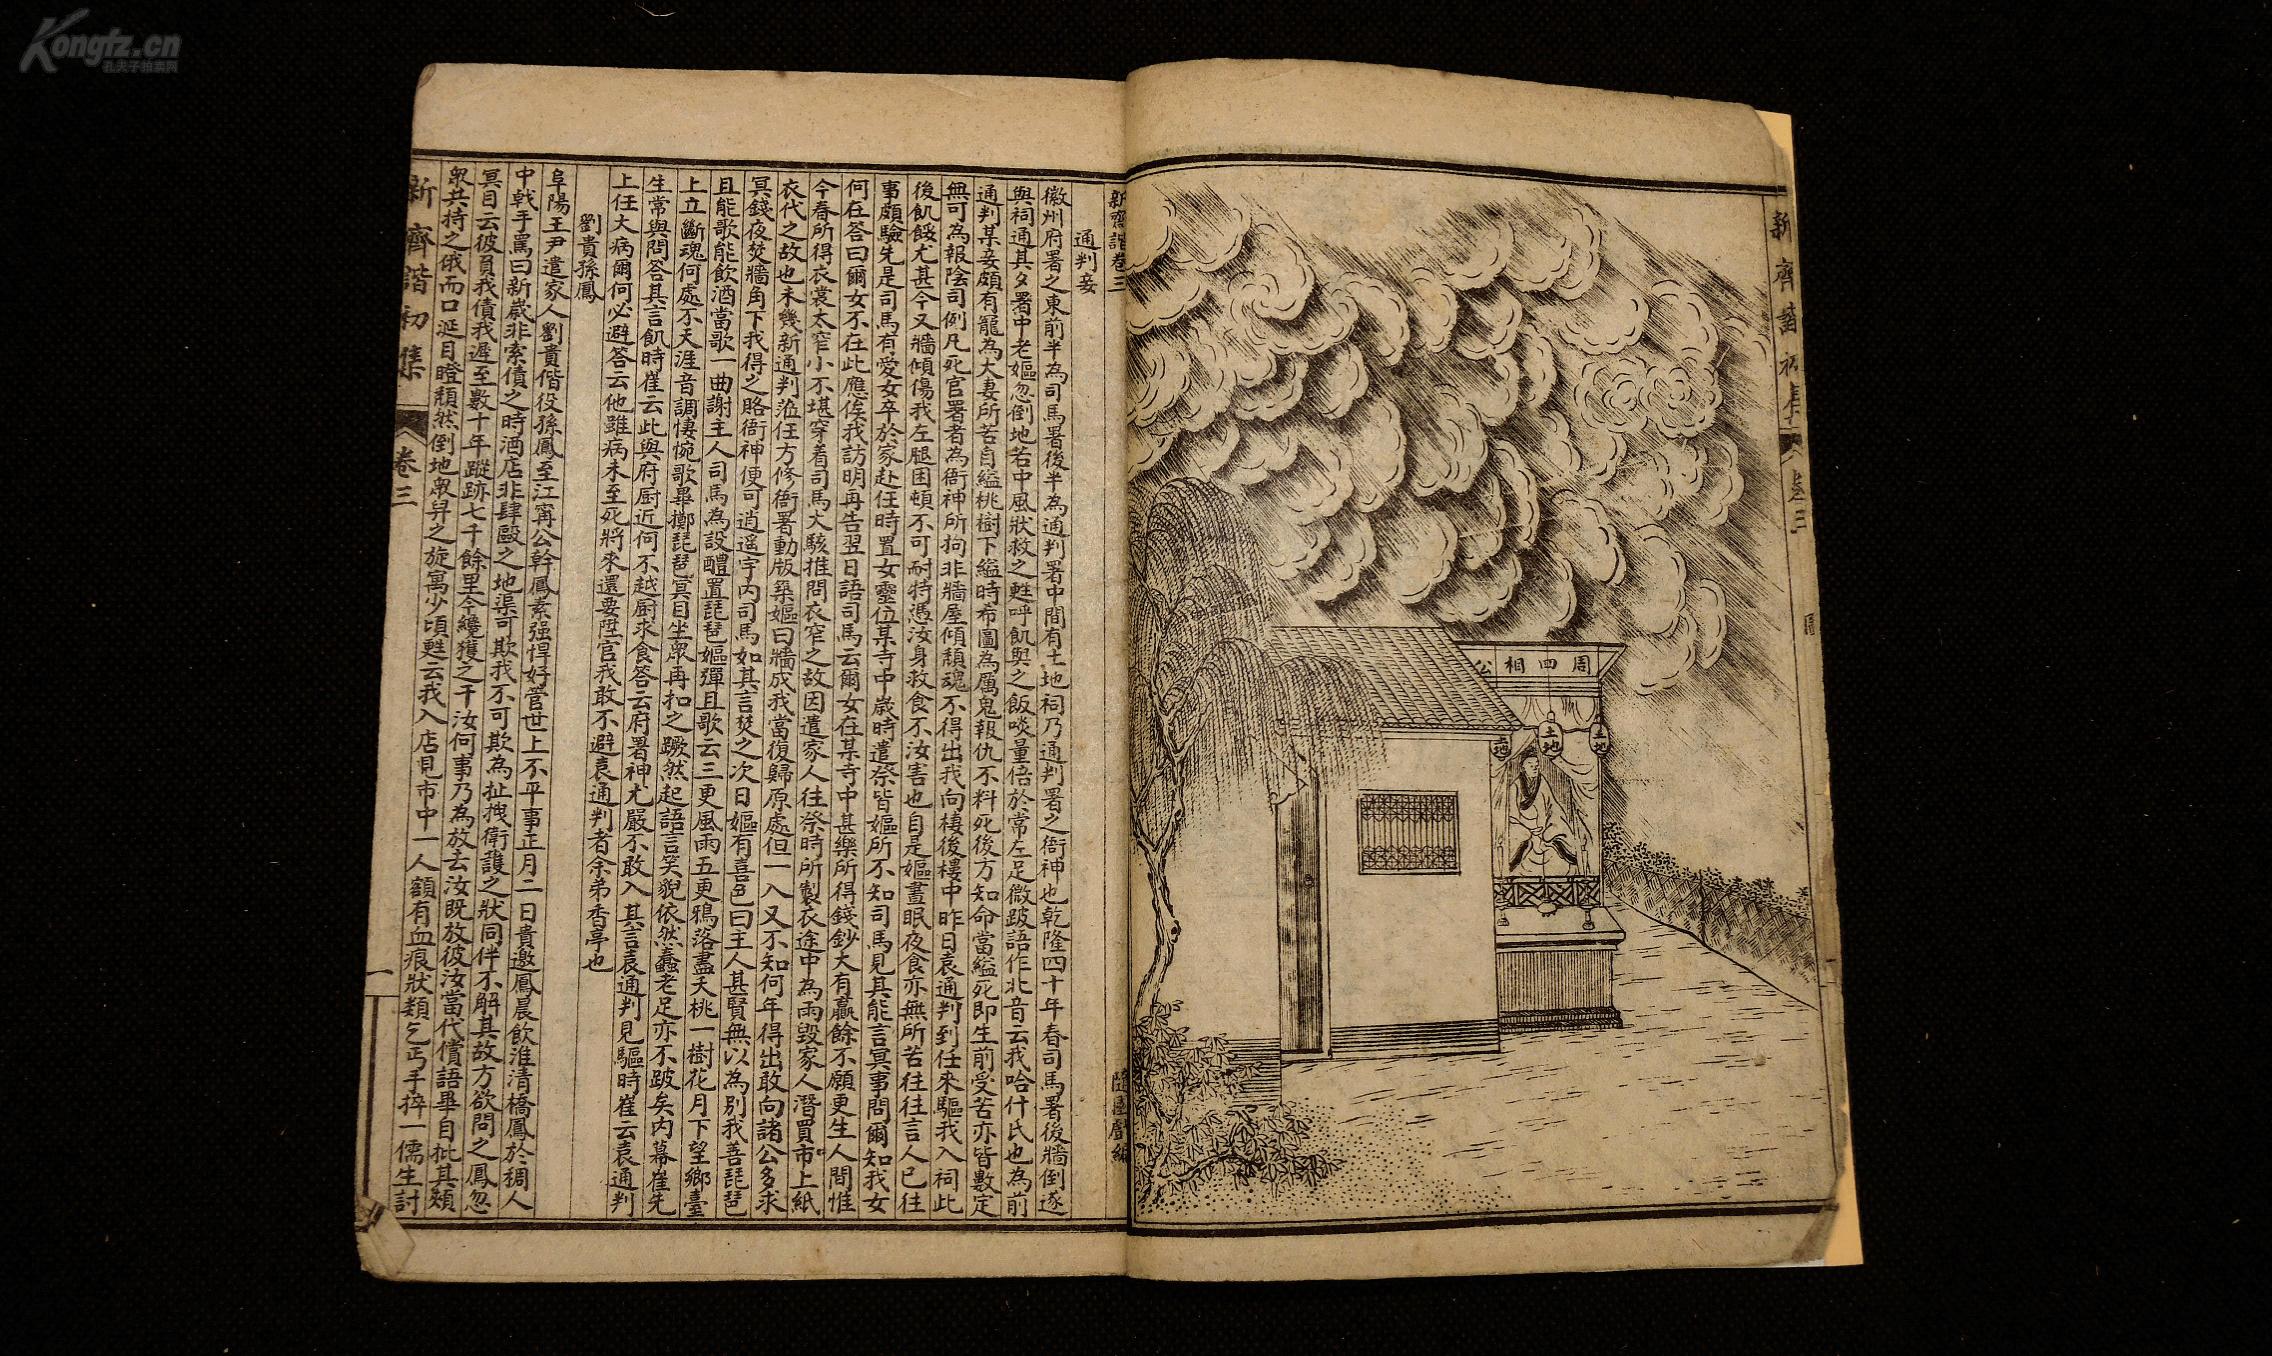 Kongfz.cn
孔夫子拍卖网
新齊諧初集
卷三
圖
周四相公
土地
土地
土地
新齊諧卷三
隨園戲編
通判妾
徽州府署之東前半為司馬署後半為通判署中間有土地祠乃通判署之衙神也乾隆四十年春司馬署後牆倒遂
與祠通其夕署中老嫗忽倒地若中風狀救之甦呼飢與之飯啖量倍於常左足微跛語作北音云我哈什氏也為前
通判某妾頗有寵為大妻所苦自縊桃樹下縊時布圖為厲鬼報仇不料死後方知命當縊死即生前受苦亦皆數定
無可為報陰司例凡死官署者為衙神所拘非牆屋傾頹魂不得出我向棲後樓中昨日袁通判到任來驅我入祠此
後飢餒尤甚今又牆傾傷我左腿困頓不可耐特憑汝身救食不汝害也自是嫗晝眠夜食亦無所苦往往言人已往
事頗驗先是司馬有愛女卒於家赴任時置女靈位某寺中歲時遣祭皆嫗所不知司馬見其能言冥事問爾知我女
何在答曰爾女不在此應俟我訪明再告翌日語司馬云爾女在某寺中甚樂所得錢鈔大有贏餘不願更生人間惟
今春所得衣裳太窄小不堪穿着司馬大駭推問衣窄之故因遣家人往祭時所製衣途中為雨毀家人潛買市上紙
衣代之故也未幾新通判蒞任方修衙署動版築嫗曰牆成我當復歸原處但一入又不知何年得出敢向諸公多求
冥錢夜焚牆角下我得之賂衙神便可逍遥宇內司馬如其言焚之次日嫗有喜色曰主人甚賢無以為別我善琵琶
且能歌能飲酒當歌一曲謝主人司馬為設醴置琵琶嫗彈且歌云三更風雨五更鴉落盡夭桃一樹花月下望鄉臺
上立斷魂何處不天涯音調悽惋歌畢擲琵琶冥目坐眾再扣之蹶然起語言笑貌依然蠢老足亦不跛矣內幕崔先
生常與問答其言飢時崔云此與府厨近何不越厨求食答云府署神尤嚴不敢入其言袁通判見驅時崔云袁通判
上任大病爾何必避答云他雖病未至死將來還要陞官我敢不避袁通判者余弟香亭也
劉貴孫鳳
阜陽王尹遣家人劉貴偕役孫鳳至江寗公幹鳳素强悍好管世上不平事正月二日貴邀鳳晨飲淮清橋鳳於稠人
中戟手罵曰新歲非索債之時酒店非肆毆之地渠可欺我不可欺為扯拽衛護之狀同伴不解其故方欲問之鳳忽
冥目云彼負我債我遲至數十年蹤跡七千餘里今纔獲之干汝何事乃為放去汝既放彼汝當代償語畢自批其頰
眾共持之俄而口涎目瞪頹然倒地眾舁之旋寓少頃甦云我入店見市中一人額有血痕狀類乞丐手捽一儒生討
新齊諧初集
卷三
一